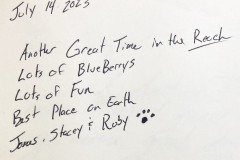 July 14 2023
Another Great Time in the Reach
Lots of BlueBerrys
Lots of Fun
Best Place on Earth
James, Stacey & Ruby